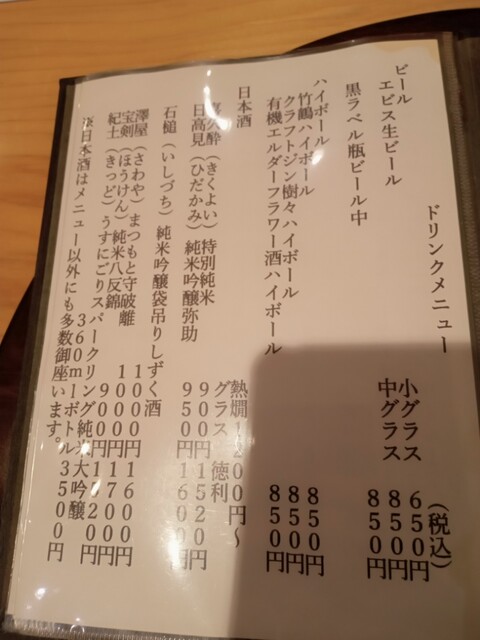 ドリンクメニュー
(税込)
ビール
エビス生ビール 小グラス 650円
中グラス 850円
黒ラベル瓶ビール中 850円
ハイボール
竹鶴ハイボール 850円
クラフトジン樹々ハイボール 850円
有機エルダーフラワー酒ハイボール 850円
日本酒 熱燗1200円〜
グラス 徳利
喜久酔(きくよい) 特別純米 900円 1520円
日高見(ひだかみ) 純米吟醸弥助 950円 1600円
石槌(いしづち) 純米吟醸袋吊りしずく酒
1000円 1600円
澤屋(さわや)まつもと守破離
1000円 1700円
宝剣(ほうけん)純米八反錦 900円 1520円
紀土(きっど)うすにごりスパークリング純米大吟醸
360mlボトル 3500円
※日本酒はメニュー以外にも多数御座います。